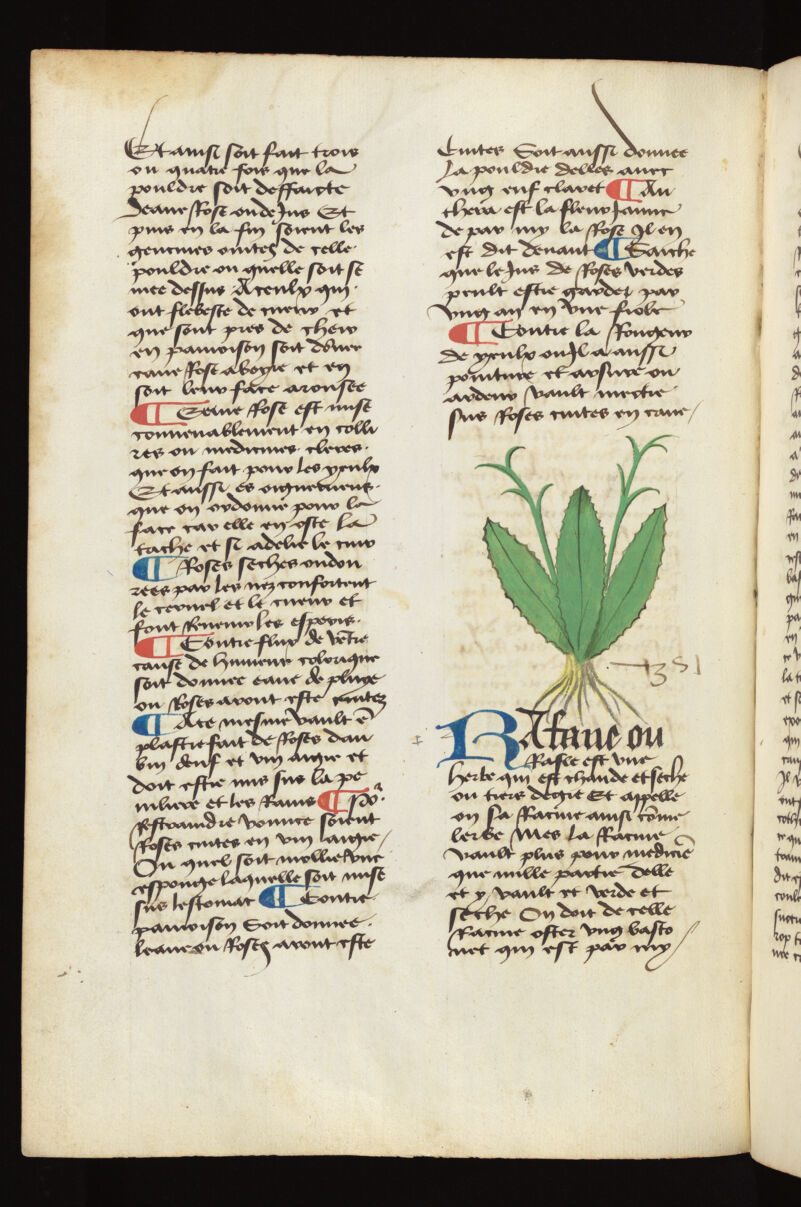 Et ainsi soit fait trois
ou quatre fois que la
pouldre soit deffaicte
deaue Rose ou de Jus Et
puis en la fin soient les
gencives ointes de celle
pouldre ou quelle soit se
mee dessus A ceulx qui
ont flebeste de cueur et
que sont pres de cheir
en pamoison soit dōnee
eaue Rose a boyre et en
soit leur face arousee
¶ Leaue Rose est mise
convenablement en colli
res ou medicines cleres
que on fait pour les yeulx
Et aussi es oignemens
que on ordonne pour la
face car elle en oste la
tache et si adelie le cuir
¶ Roses seches oudou
rees par les nez confortent
le cervel et le cueur et
font Revenir les esperis
¶ Contre flux de vētre
cause de humeur colorique
soit donnee eaue de pluye
ou Roses aront este cuites
¶ A ce mesme vault ē
plastre fait de Roses dau
bun deuf et vin aigre et
doit estre mis sus la pe
nilliere et les Rains ¶ Po2
Restraindre vomite soient
Roses cuites en vin aigre
Ou quel soit mollie une
esponge laquelle soit mise
sus lestomac ¶ Contre
pamoison Soit donnee
leaue ou Roses aront este
Cuites Soit aussi donnee
La pouldre delles avec
ung euf claret ¶ An
thera est la fleur Jaune
de par my la Rose Il en
est dit devant ¶ Saiche
que le Jus de Roses verdes
peult estre garder par
ung an en une fiole
¶ Contre la Rougeur
de yeulx ou Il a aussi
pointure et arsure ou
ardeur vault mectre
sus Roses cuites en eaue
351
RAfane ou
Rafle est une
herbe qui est chaude et seche
ou tiers degre Et appelle
on sa Racine ainsi cōme
lerbe Mes la Racine
vault plus pour medicīe
que nulle partie delle
et y vault et verde et
seche On doit de celle
Racine oster ung basto
net qui est par my